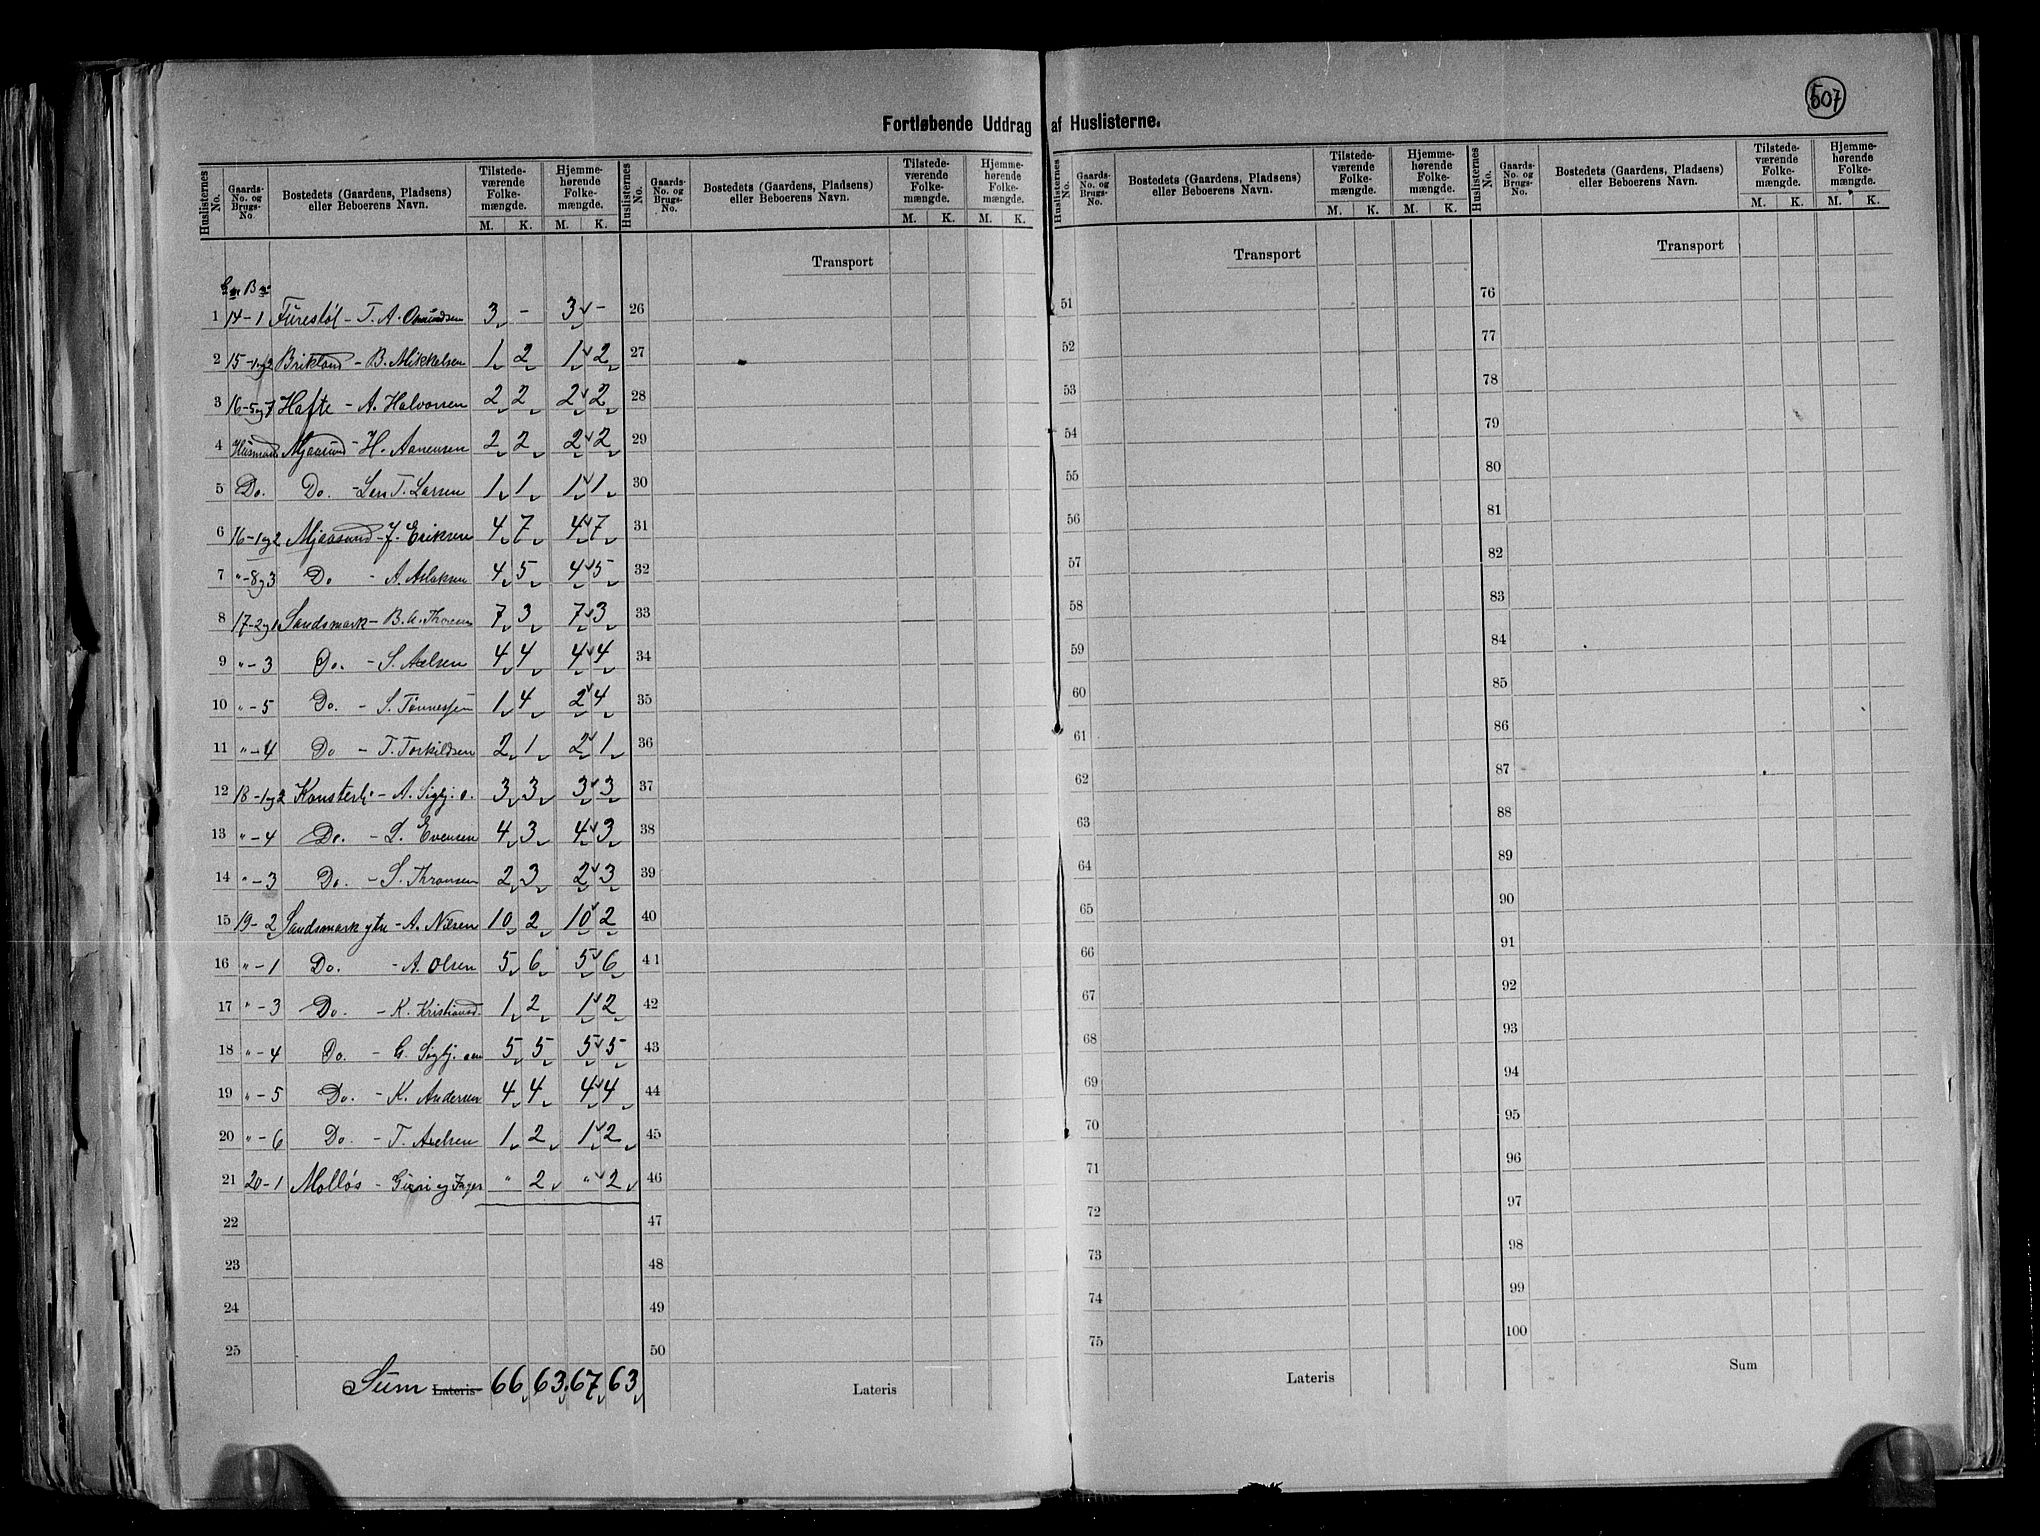 507
Fortløbende Uddrag af Huslisterne.
Huslisternes No. Gaards-No. og Brugs-No. Bostedets (Gaardens, Pladsens) eller Beboerens Navn. Tilstedeværende Folkemængde. M. K. Hjemmehørende Folkemængde. M. K.
Huslisternes No. Gaards-No. og Brugs-No. Bostedets (Gaardens, Pladsens) eller Beboerens Navn. Tilstedeværende Folkemængde. M. K. Hjemmehørende Folkemængde. M. K.
Huslisternes No. Gaards-No. og Brugs-No. Bostedets (Gaardens, Pladsens) eller Beboerens Navn. Tilstedeværende Folkemængde. M. K. Hjemmehørende Folkemængde. M. K.
Huslisternes No. Gaards-No. og Brugs-No. Bostedets (Gaardens, Pladsens) eller Beboerens Navn. Tilstedeværende Folkemængde. M. K. Hjemmehørende Folkemængde. M. K.
Transport Transport Transport
1 14-1 Furestøl - T. A. Omundsen 3 - 3 - 26 51 76
2 15-1og2 Brikland - B. Mikkelsen 1 2 1 2 27 52 77
3 16-5og7 Hafte - A. Halvorsen 2 2 2 2 28 53 78
4 Husmand Mjaasund - H. Aanensen 2 2 2 2 29 54 79
5 Do. Do. - Lars T. Larsen 1 1 1 1 30 55 80
6 16-1og2 Mjaasund - J. Eriksen 4 7 4 7 31 56 81
7 "-8og3 Do - A. Aslaksen 4 5 4 5 32 57 82
8 17-2og1 Sandsmark - B. 7 3 7 3 33 58 83
9 "-3 Do. - S. Axelsen 4 4 4 4 34 59 84
10 "-5 Do. - S. Tønnessen 1 4 2 4 35 60 85
11 "-4 Do - T. Torkildsen 2 1 2 1 36 61 86
12 18-1og2 - A. Sigbj. 3 3 3 3 37 62 87
13 "-4 Do. - Evensen 4 3 4 3 38 63 88
14 "-3 Do. - S. Thronsen 2 3 2 3 39 64 89
15 19-2 Sandsmark ytre - A. Nilsen 10 2 10 2 40 65 90
16 "-1 Do. - A. Olsen 5 6 5 6 41 66 91
17 "-3 Do. - K. Kristiansd. 1 2 1 2 42 67 92
18 "-4 Do. - G. Sigbj. sen 5 5 5 5 43 68 93
19 "-5 Do. - K. Andersen 4 4 4 4 44 69 94
20 "-6 Do. - T. Axelsen 1 2 1 2 45 70 95
21 20-1 Molløs - og Inger " 2 " 2 46 71 96
22 47 72 97
23 48 73 98
24 49 74 99
25 50 75 100
Sum Lateris 66 63. 67 63 Lateris Lateris Sum